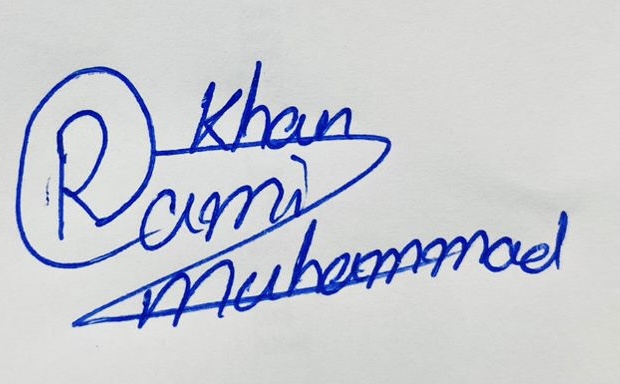 Khan
Rami
Muhammad